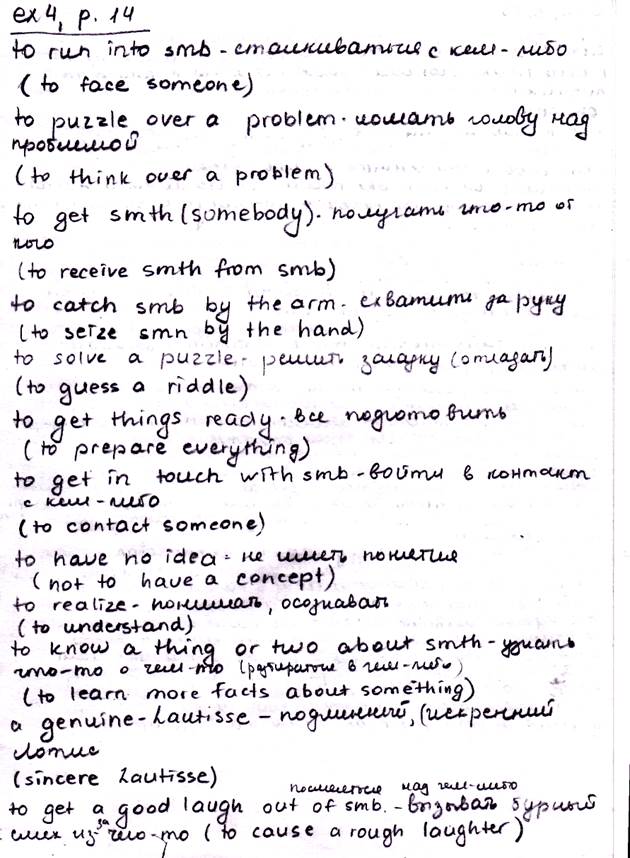 ex 4, p. 14
to run into smb - сталкиваться с кем-либо
(to face someone)
to puzzle over a problem - ломать голову над
проблемой
(to think over a problem)
to get smth (somebody) - получать что-то от
кого
(to receive smth from smb)
to catch smb by the arm - схватить за руку
(to seize smn by the hand)
to solve a puzzle - решить загадку (отгадать)
(to guess a riddle)
to get things ready - все подготовить
(to prepare everything)
to get in touch with smb - войти в контакт
с кем-либо
(to contact someone)
to have no idea - не иметь понятия
(not to have a concept)
to realize - понимать, осознавать
(to understand)
to know a thing or two about smth - узнать
что-то о чем-то (разбираться в чем-либо)
(to learn more facts about something)
a genuine-Lautisse - подлинный, (искренний
Лотис
(sincere Lautisse)
посмеяться над чем-либо
to get a good laugh out of smb. - вызывать бурный
смех из за чего-то (to cause a rough laughter)